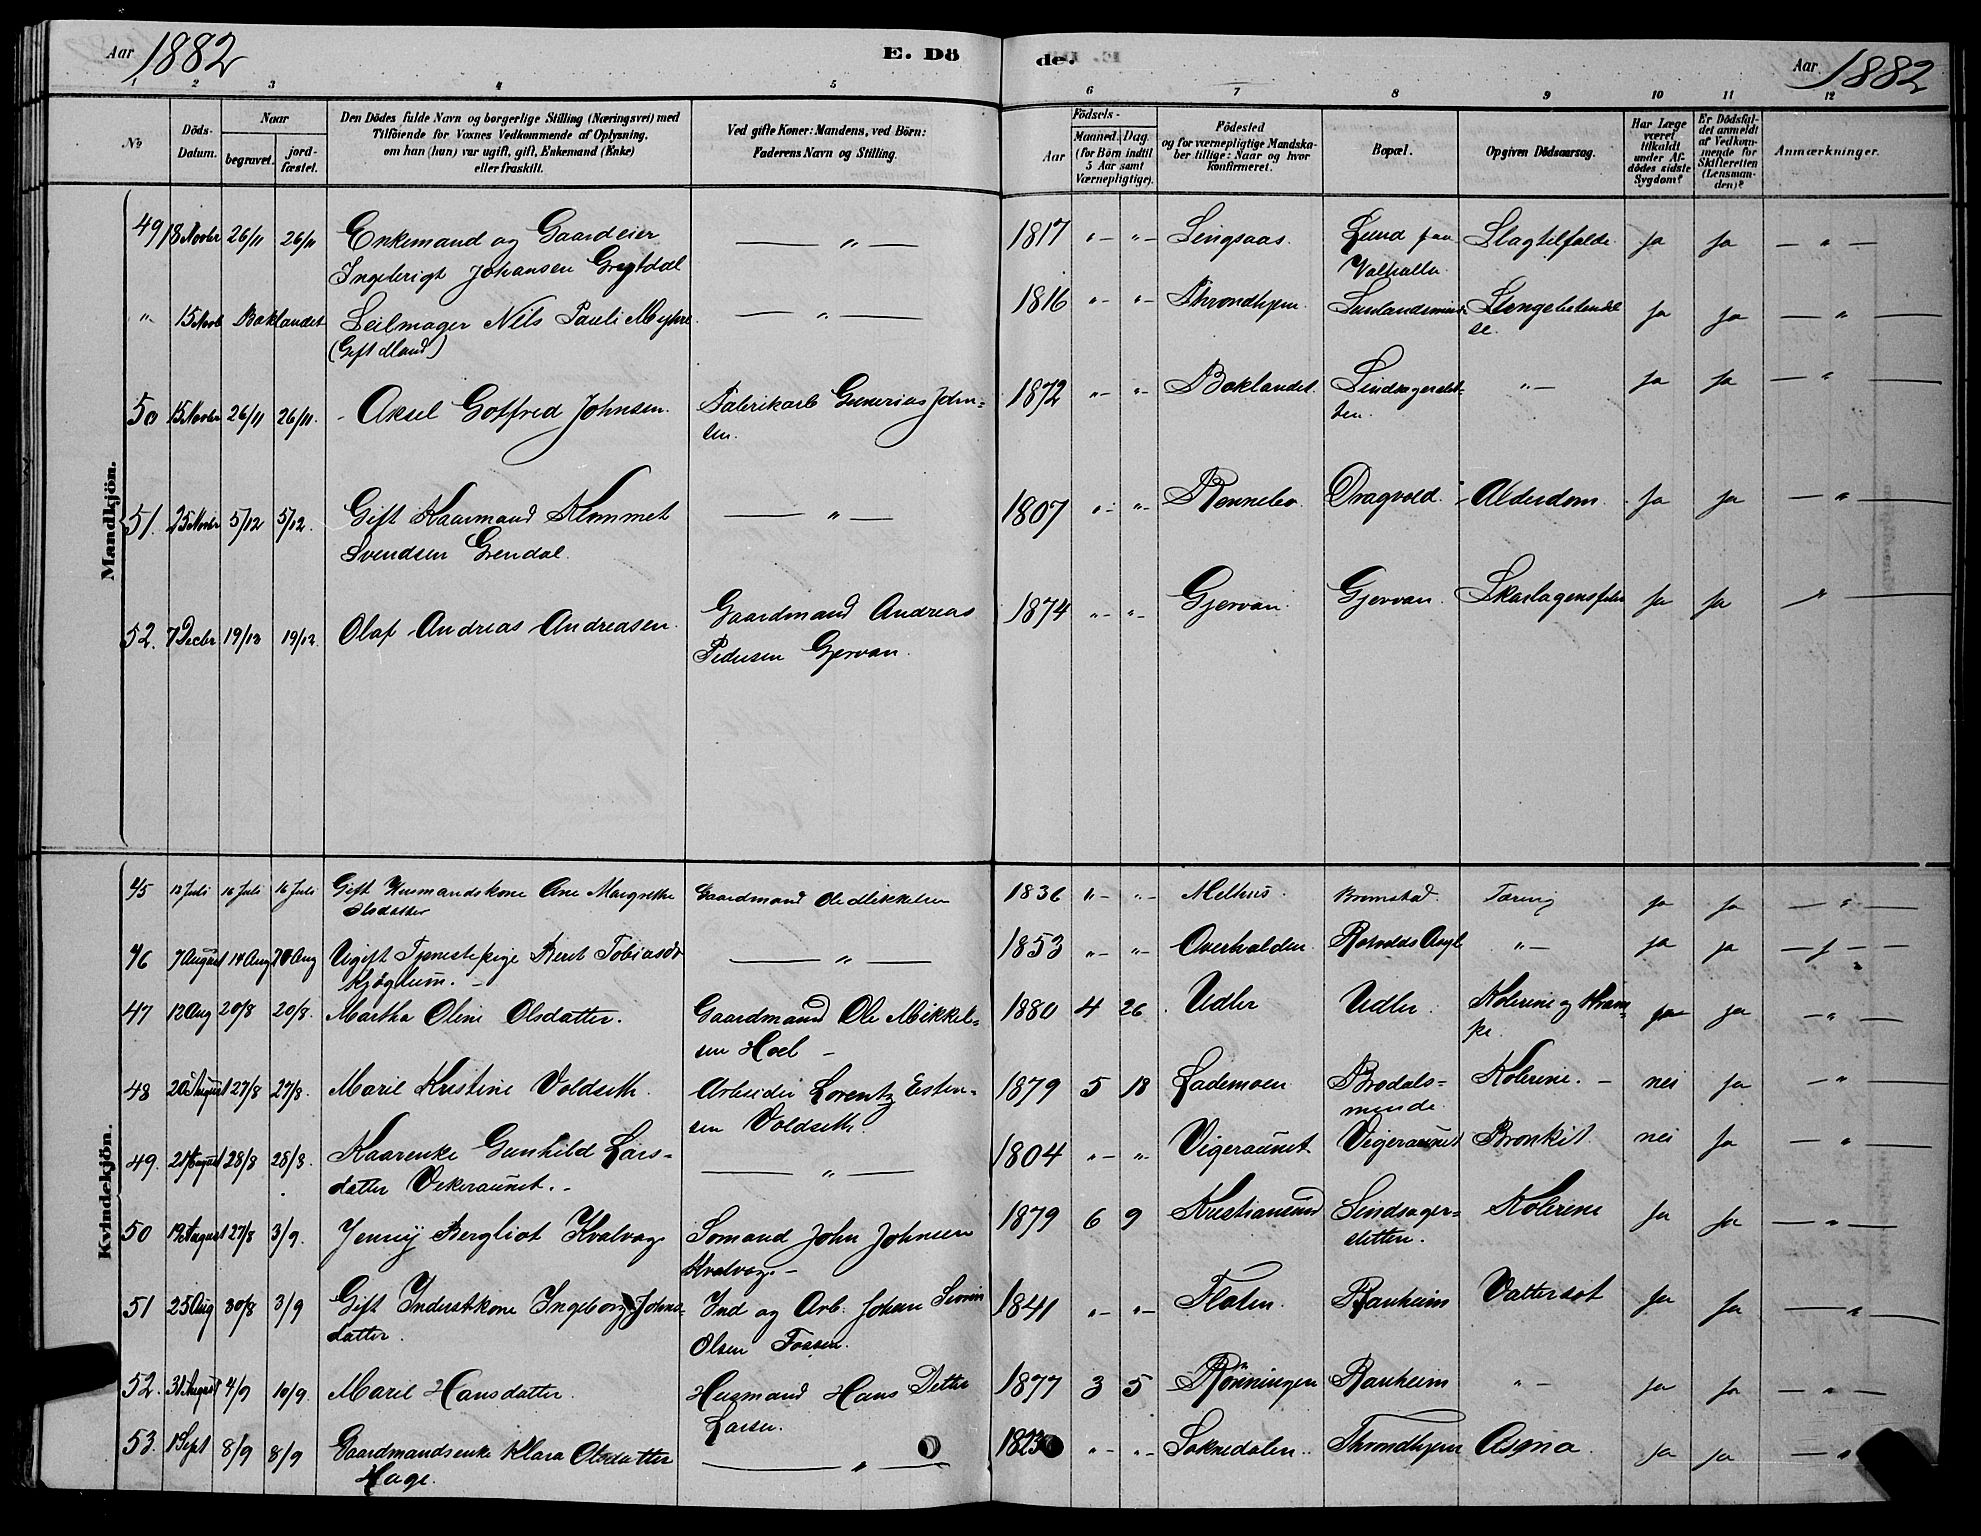 Aar 1882 E. Dö de. Aar 1882
1 2 3 4 5 6 7 8 9 10 11 12
No
Döds-Datum.
Naar
begravet.
jord-fæstet.
Den Dödes fulde Navn og borgerlige Stilling (Næringsvei) med
Tilföiende for Voxnes Vedkommende af Oplysning,
om han (hun) var ugift, gift, Enkemand (Enke)
eller fraskilt.
Ved gifte Koner: Mandens, ved Börn:
Faderens Navn og Stilling.
Födsels-
Aar
Maaned. Dag.
(for Börn indtil
5 Aar samt
Værnepligtige).
Födested
og for værnepligtige Mandska-
ber tillige: Naar og hvor
konfirmeret.
Bopæl.
Opgiven Dödsaarsag.
Har Læge
været
tilkaldt
under Af-
dödes sidste
Sygdom?
Er Dödsfal-
det anmeldt
af Vedkom-
mende for
Skifteretten
(Lensman-
den)?
Anmærkninger.
Mandkjön.
49 18 Novbr 26/11 26/11 Enkemand og Gaardeier — " — 1817 "- "- Singsaas. Lund paa Slagtilfælde. ja ja — " —
Ingebrigt Johansen Valhalla
" 15 Novb Baklandet Seilmager Nils Pauli Myhre — " — 1816 "- "- Throndhjem ja ja — " —
(Gift Mand)
50 15 Novbr 26/11 26/11. Aksel Gotfred Johnsen. Fabrikarb Gunerius John= 1872 "- "- Baklandet. "- ja ja — " —
sen.
51. 25 Novbr 5/12 5/12. Gift Kaarmand Klommet — " — 1807 "- "- Rennebo Dragvold. Alderdom. ja ja — " —
Svendsen Grendal.
52. 7 Decbr 19/12 19/12 Olaf Andreas Andreasen. Gaardmand Andreas 1874 "- "- Gjervan. Gjervan. Skarlagensfeber ja ja "
Pedersen Gjervan.
Kvindekjön.
45 13 Juli 16 Juli 16 Juli Gift Husmandskone Ane Margrethe Gaardmand Ole Mikkelsen 1836 "- "- Melhus. Bromstad. Tæring ja ja — " —
Olsdatter
46 7 August 14 Aug Ugift Tjenestepige Beret Tobiasdr — " — 1853 "- "- Overhalden Rotvolds Asyl "- ja ja
47 12 Aug 20/8 20/8. Martha Oline Olsdatter. Gaardmand Ole Mikkel= 1880 4 26 Udler Udler. Kolerine og Kram= ja ja — " —
sen Hoel pe.
48 20 August 27/8 27/8. Marie Kristine Voldseth. Arbeider Lorentz Esten= 1879 5 18 Lademoen Brodals= Kolerine. nei ja — " —
sen Voldseth. minde.
49. 21 August 28/8 28/8. Kaarenke Gunhild Lars= — " — 1804 "- " Vigeraunet Vigeraunet Bronkit. nei ja — " —
datter Vekeraunet.
50 19 August 27/8 3/9. Jenny Bergliot Kvalvaag Sømand John Johnsen 1879 6 9 Kristiansund Sindsager= Kolerine ja ja — " —
Kvalvaag sletten.
51 25 Aug 30/8 3/9 Gift Inderstkone Ingeborg Johns= Ind og Arb. Johan 1841 "- "- Flaten. Ranheim Vattersot ja ja — "
datter. Olsen Fossen.
52. 31 August 4/9 10/9. Marie Hansdatter. Husmand Hans Petter 1877 3 5 Rønningen Ranheim "- ja ja — " —
Larsen.
53. 1 Sept 8/9 8/9 Gaardmandsenke Klara Olsdatter — " — 1823 "- "- Soknedalen. Throndhjem Asma ja ja — "
Hage.